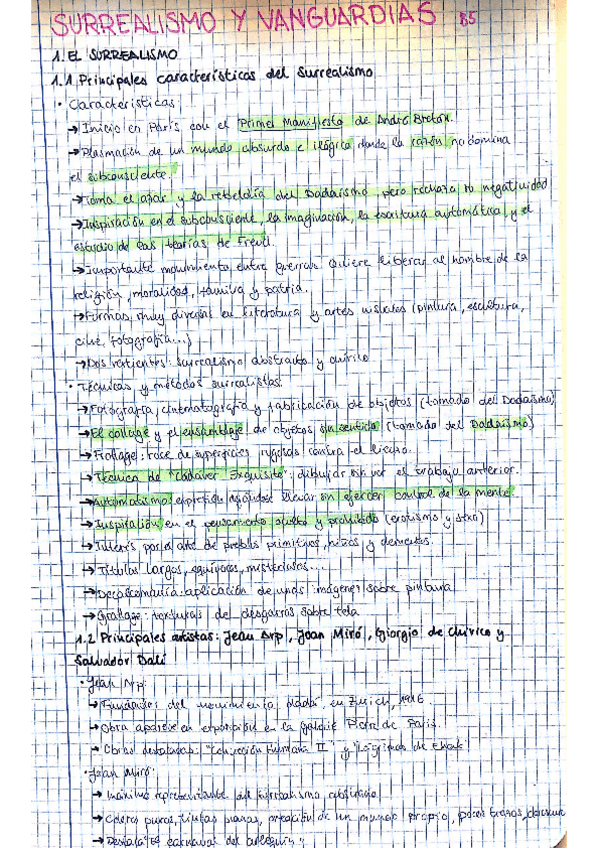 SURREALISMO Y VANGUARDIAS B5
1. EL SURREALISMO
1.1 Principales características del Surrealismo
• Características:
→ Inicio en París con el Primer Manifiesto de André Breton.
→ Plasmación de un mundo absurdo e ilógico donde la razón no domina
el subconsciente.
→ Toma el azar y la rebeldía del Dadaísmo, pero rechaza su negatividad
→ Inspiración en el subconsciente, la imaginación, la escritura automática y el
estudio de las teorías de Freud.
→ Importante movimiento entre guerras. Quiere liberar al hombre de la
religión, moralidad, familia y patria.
→ Formas muy diversas en literatura y artes visuales (pintura, escultura,
cine, fotografía...)
→ Dos vertientes: surrealismo abstracto y onírico
• Técnicas y métodos surrealistas:
→ Fotografía, cinematografía y fabricación de objetos (tomado del Dadaísmo)
→ El collage y el ensamblaje de objetos sin sentido (tomado del Dadaísmo)
→ Frottage: roce de superficies rugosas contra el lienzo.
→ Técnica de "Cadáver Exquisito": dibujar sin ver el trabajo anterior.
→ Automatismo: dejándose llevar sin ejercer control de la mente.
→ Inspiración en el pensamiento oculto y prohibido (erotismo y sexo)
→ Interés por el arte de pueblos primitivos, niños y dementes.
→ Títulos largos, equívocos, misteriosos...
→ Decalcomanía: aplicación de imágenes sobre pintura
→ Grattage: texturas de desgarros sobre tela
1.2 Principales artistas: Jean Arp, Joan Miró, Giorgio de Chirico y
Salvador Dalí
• Jean Arp:
→ Fundador del movimiento dadá, en Zurich, 1916
→ Obra aparece en exposición en la galería Pierre de París.
→ Obras destacadas: "Concreción Humana II" y "Lágrimas de Enak"
• Joan Miró:
→ Máximo representante del surrealismo abstracto
→ Colores puros, tintas planas, creación de un mundo propio, pocos trazos,
→ Destaca "El carnaval del arlequín".